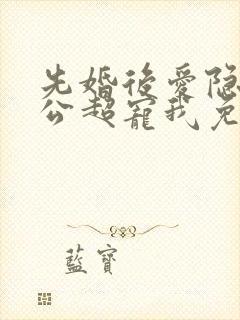 先婚後愛隐
公超寵我免
藍寶